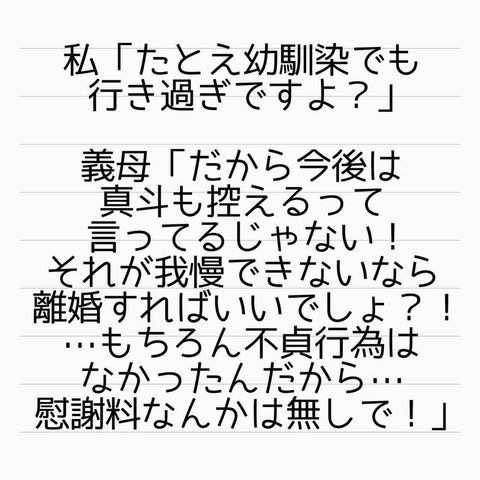 私「たとえ幼馴染でも
行き過ぎですよ？」
義母「だから今後は
真斗も控えるって
言ってるじゃない！
それが我慢できないなら
離婚すればいいでしょ？！
…もちろん不貞行為は
なかったんだから…
慰謝料なんかは無しで！」